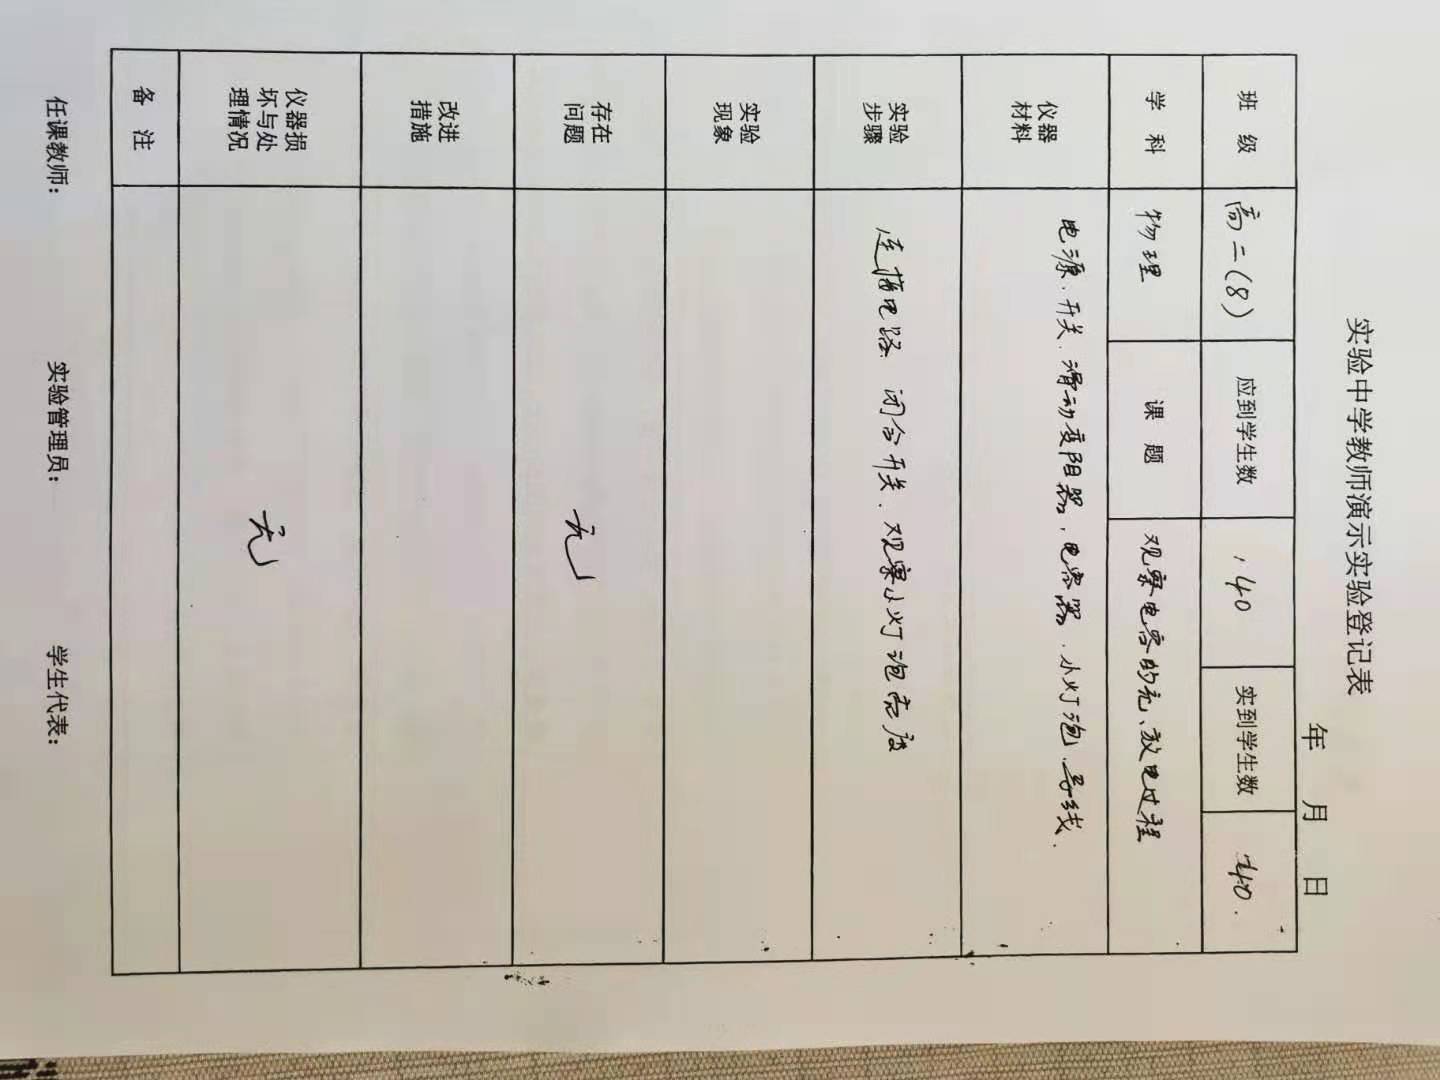 实验中学教师演示实验登记表
年 月 日
班 级 高二(8) 应到学生数 40 实到学生数 40.
学 科 物理 课 题 观察电容的充、放电过程
仪器
材料
电源、开关、滑动变阻器、电容器、小灯泡、导线.
实验
步骤
连接电路 闭合开关、观察小灯泡亮度
实验
现象
存在
问题
无
改进
措施
仪器损
坏与处
理情况
无
备 注
任课教师: 实验管理员: 学生代表: